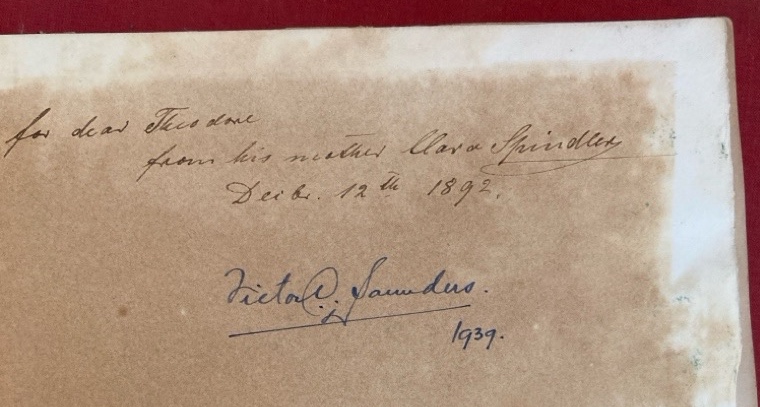 for dear Theodore
from his mother Clara Spindler
Decbr. 12th 1892.
Victor A. Saunders.
1939.